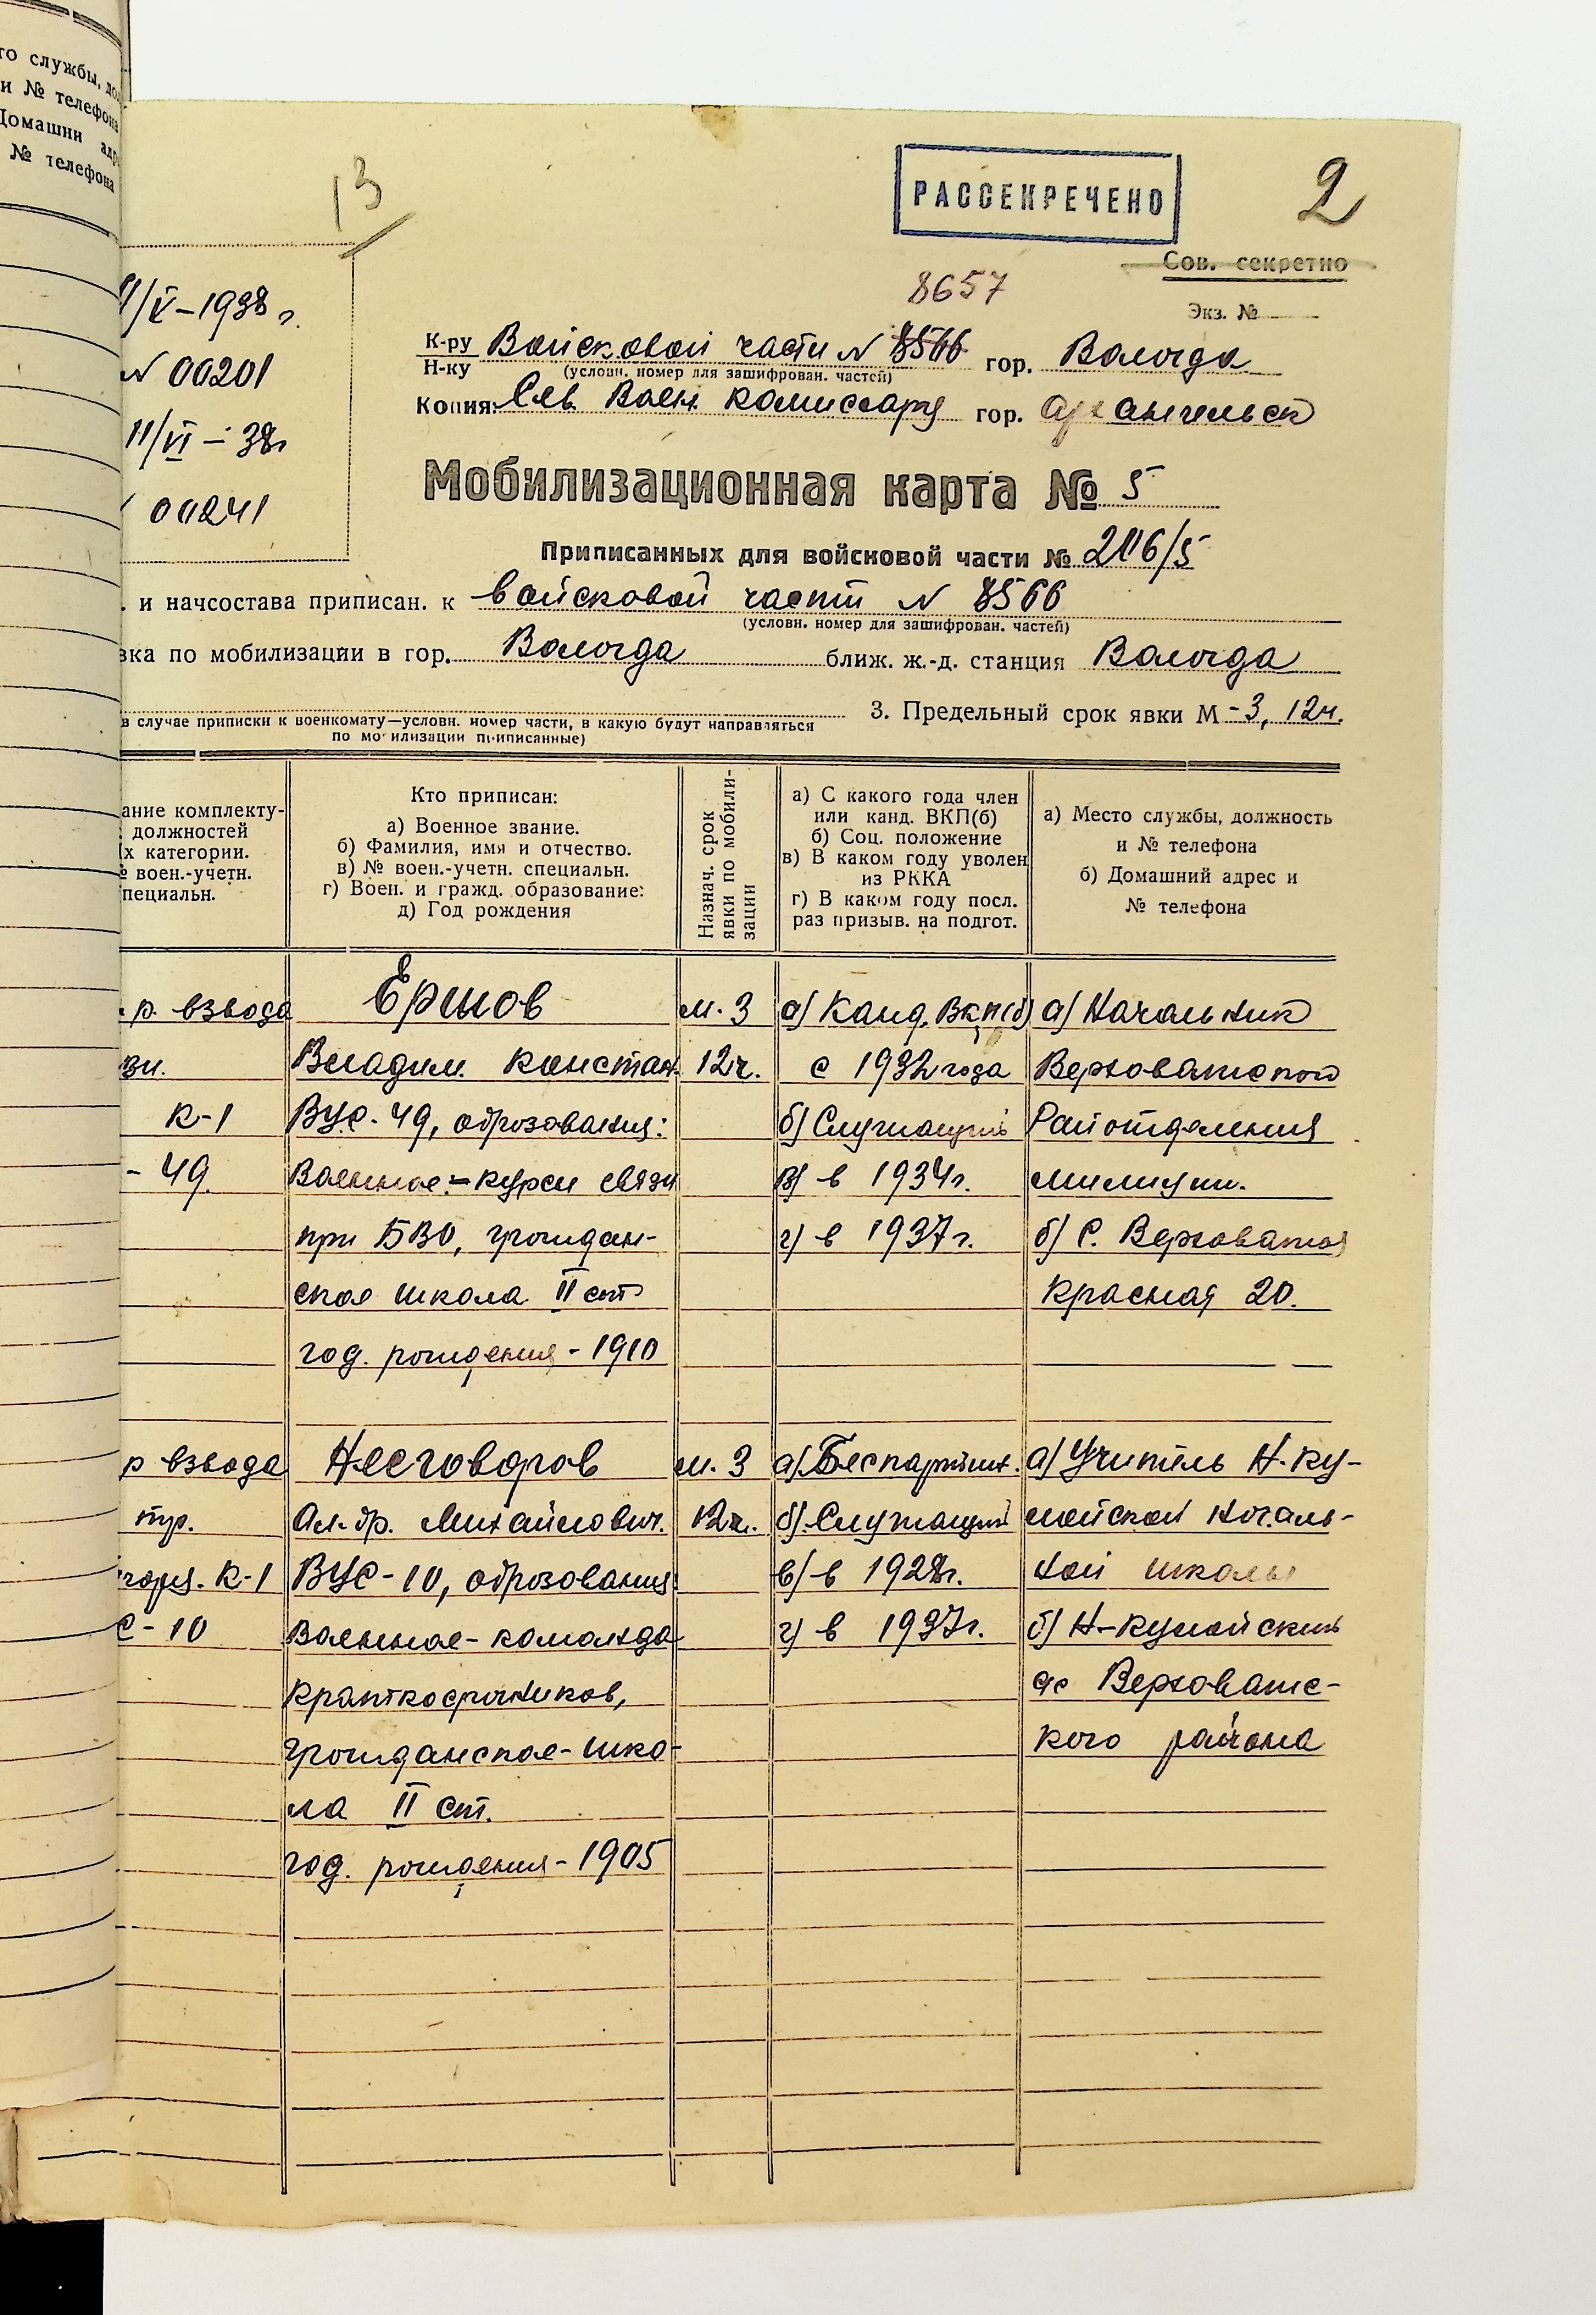 го службы, до
и № телефона
Домашни адр
№ телефона
13
РАССЕКРЕЧЕНО
2
Сов. секретно
8657
Экз. №
/V-1938 г.
К-ру
Н-ку
Войсковой части N 8566 гор. Вологда
(условн. номер для зашифрован. частей)
N 00201
Копия: Сев. Воен. Комиссару гор. Архангельск
11/VI-38г
Мобилизационная карта № 5
00241
Приписанных для войсковой части № 2116/5
. и начсостава приписан. к войсковой части N 8566
(условн. номер для зашифрован. частей)
вка по мобилизации в гор. Вологда ближ. ж.-д. станция Вологда
3. Предельный срок явки М-3, 12ч.
в случае приписки к военкомату—условн. номер части, в какую будут направляться
по мобилизации приписанные)
ание комплекту-
должностей
х категории.
№ воен.-учетн.
пециальн.
Кто приписан:
а) Военное звание.
б) Фамилия, имя и отчество.
в) № воен.-учетн. специальн.
г) Воен. и гражд. образование:
д) Год рождения
Назнач. срок
явки по мобили-
зации
а) С какого года член
или канд. ВКП(б)
б) Соц. положение
в) В каком году уволен
из РККА
г) В каком году посл.
раз призыв. на подгот.
а) Место службы, должность
и № телефона
б) Домашний адрес и
№ телефона
р. взвода
зи.
К-1
- 49.
Ершов
Владим. Констан.
ВУС-49, образования:
Военное:-курсы связи
при БВО, граждан-
ское школа II ст
год. рождения-1910
м. 3
12ч.
а) Канд. ВКП(б)
с 1932 года
б) Служащий
в) в 1934г.
г) в 1937г.
а) Начальник
Верховатского
Райотделения
милиции.
б) С. Верховатья
Красная 20.
р взвода
тр.
гория. К-1
С-10
Несговоров
Ал-др. Михайлович.
ВУС-10, образования
Военное-команда
Краткосрочников,
гражданское-шко-
ла II ст.
год. рождения-1905
м. 3
12ч.
а) Беспартийн.
б) Служащий
в) в 1928г.
г) в 1937г.
а) Учитель Н.Ку-
лойской Началь-
ной школы
б) Н-Кулойский
с/с Верховатс-
кого района